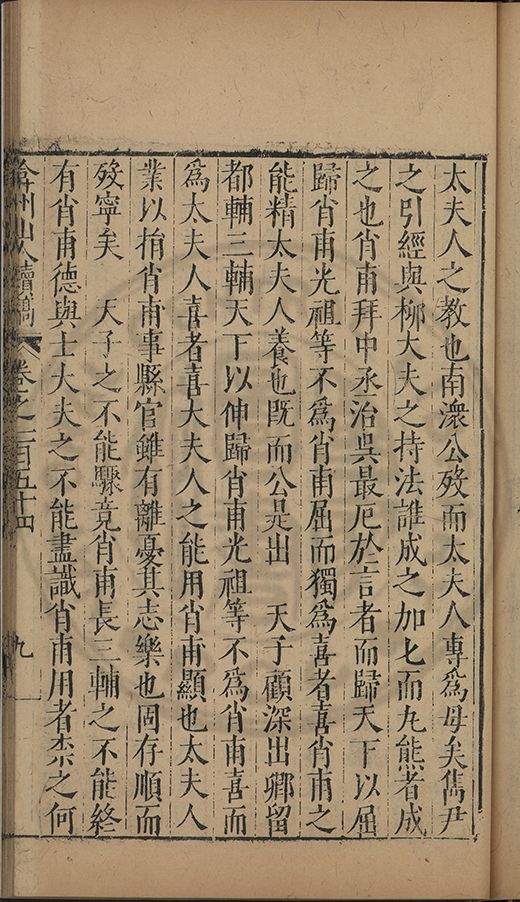 太夫人之教也南濠公歿而太夫人專為母矣雋尹
之引經與柳大夫之持法誰成之加匕而丸熊者成
之也肖甫拜中丞治吳最厄於言者而歸天下以屈
歸肖甫光祖等不為肖甫屈而獨為喜者喜肖甫之
能精太夫人養也旣而公是出　天子顧深出卿留
都輔三輔天下以伸歸肖甫光祖等不為肖甫喜而
為太夫人喜者喜太夫人之能用肖甫顯也太夫人
業以捐肖甫事縣官雖有離憂其志樂也固存順而
歿寧矣　天子之不能驟竟肖甫長三輔之不能終
有肖甫德與士大夫之不能盡識肖甫用者柰之何
弇州山人續稿　卷之一百五十四　九